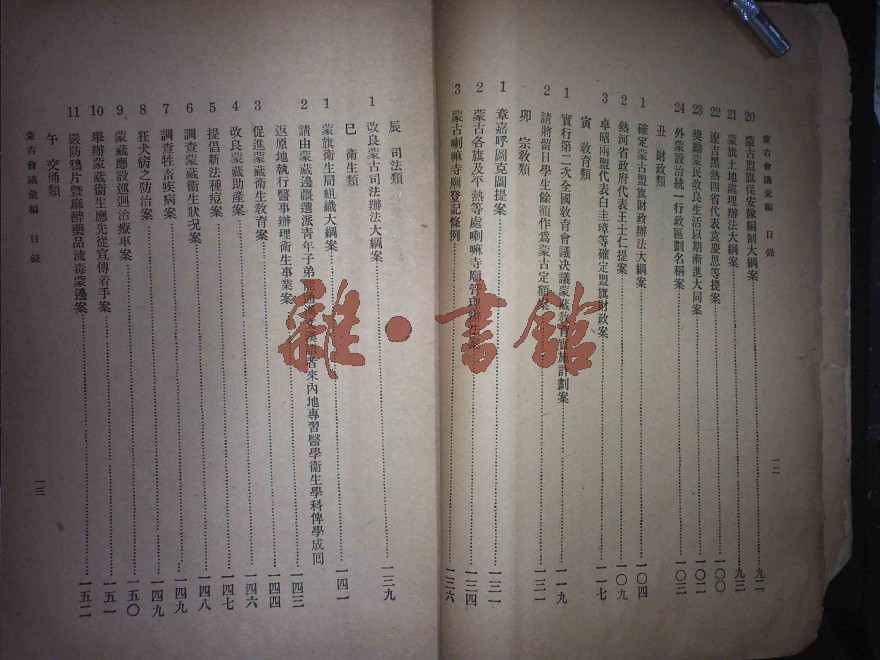 蒙古會議彙編 目錄
20 蒙古盟旗保安隊編制大綱案 九二
21 蒙旗土地處理辦法大綱案 九三
22 遼吉黑熱四省代表袁慶恩等提案 一〇〇
23 獎勵蒙民改良生活以期漸進大同案 一〇二
24 外蒙設治統一行政區劃名稱案 一〇三
丑 財政類
1 確定蒙古盟旗財政辦法大綱案 一〇四
2 熱河省政府代表王士仁提案 一〇九
3 卓昭兩盟代表白圭璋等確定盟旗財政案 一一七
寅 教育類
1 實行第二次全國教育會議决議蒙藏教育實施計劃案 一一九
2 請將留日學生餘額作爲蒙古定額案 一三一
卯 宗教類
1 章嘉呼圖克圖提案 一三一
2 蒙古各旗及平熱等處喇嘛寺廟管理 案 一三四
3 蒙古喇嘛寺廟登記條例 一三六
一二
辰 司法類
1 改良蒙古司法辦法大綱案 一三九
巳 衛生類
1 蒙旗衛生局組織大綱案 一四一
2 請由蒙藏邊疆選派青年子弟能通漢文漢語者來內地專習醫學衛生學科俾學成回
返原地執行醫事辦理衛生事業案 一四三
3 促進蒙藏衛生教育案 一四四
4 改良蒙藏助產案 一四六
5 提倡新法種痘案 一四七
6 調查蒙藏衛生狀况案 一四八
7 調查牲畜疾病案 一四九
8 狂犬病之防治案 一四九
9 蒙藏應設巡迴治療車案 一五〇
10 舉辦蒙藏衛生應先從宣傳着手案 一五一
11 嚴防鴉片暨麻醉藥品流毒蒙邊案 一五二
午 交通類
蒙古會議彙編 目錄
一三
雜·書館